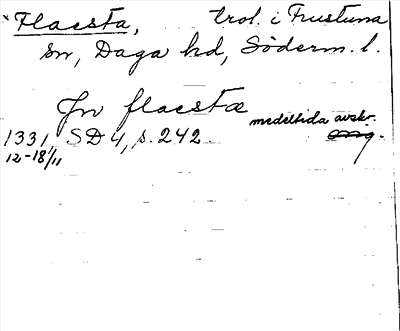 *Flaesta, trol. i Frustuna
sn, Daga hd, Söderm. l.
Jn flaestæ
medeltida avskr.
1331 SD 4, s. 242. orig.
12-18/11